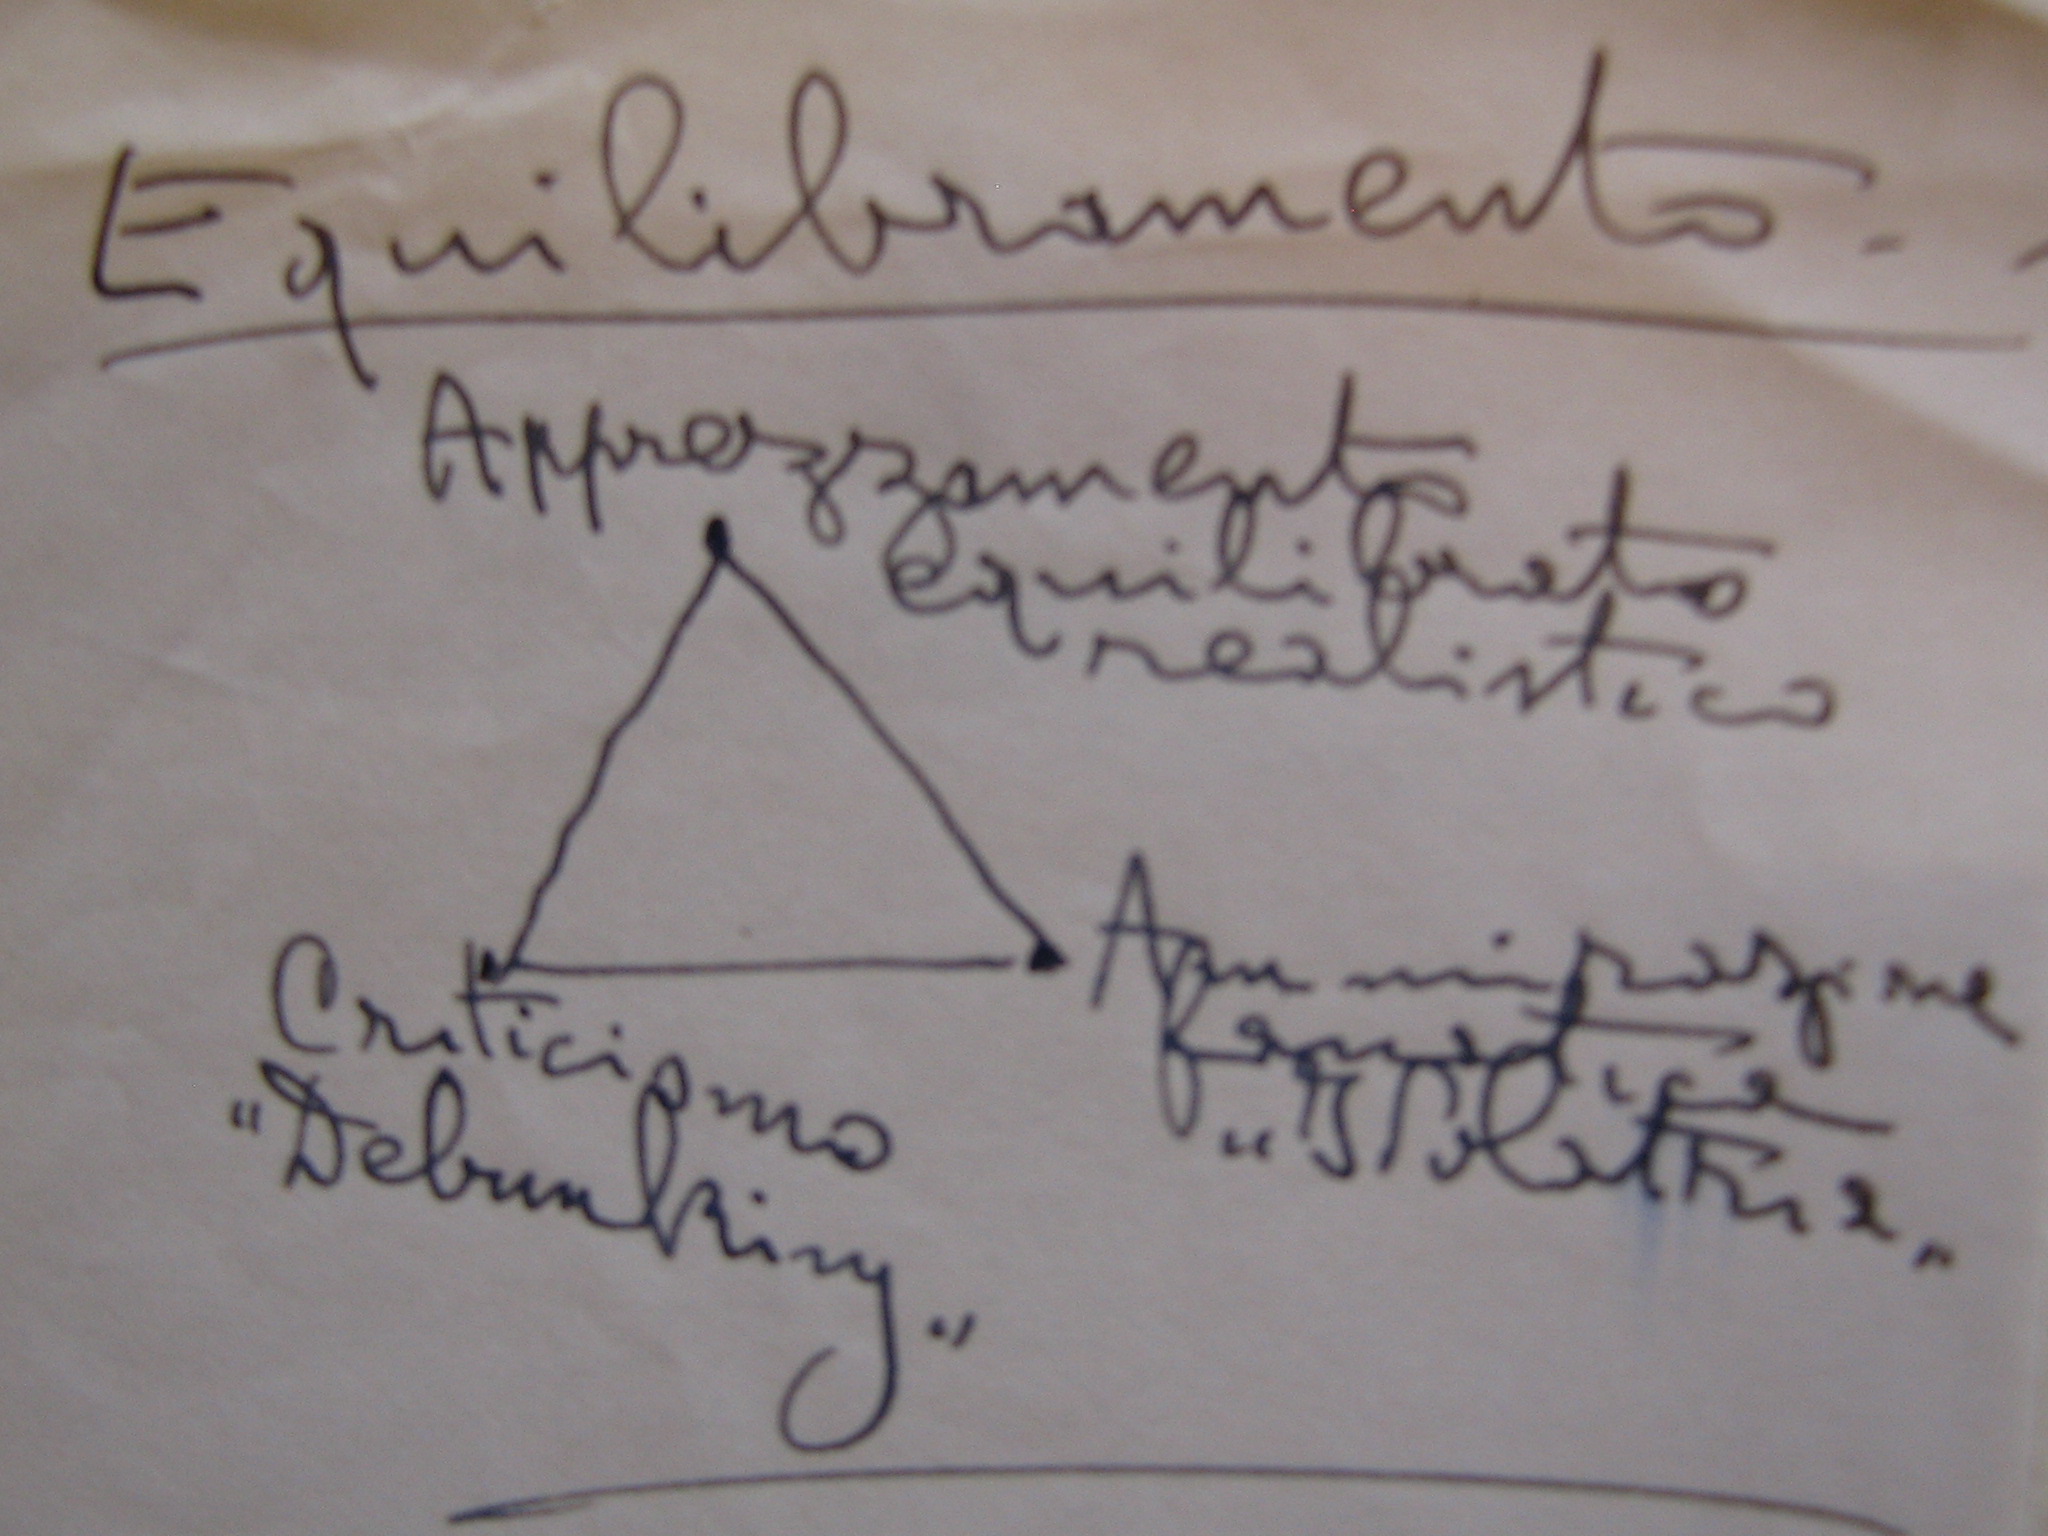 Equilibramento.-
Apprezzamento
equilibrato
realistico
Ammirazione
fanatica
"Idolatria"
Criticismo
"Debunking"